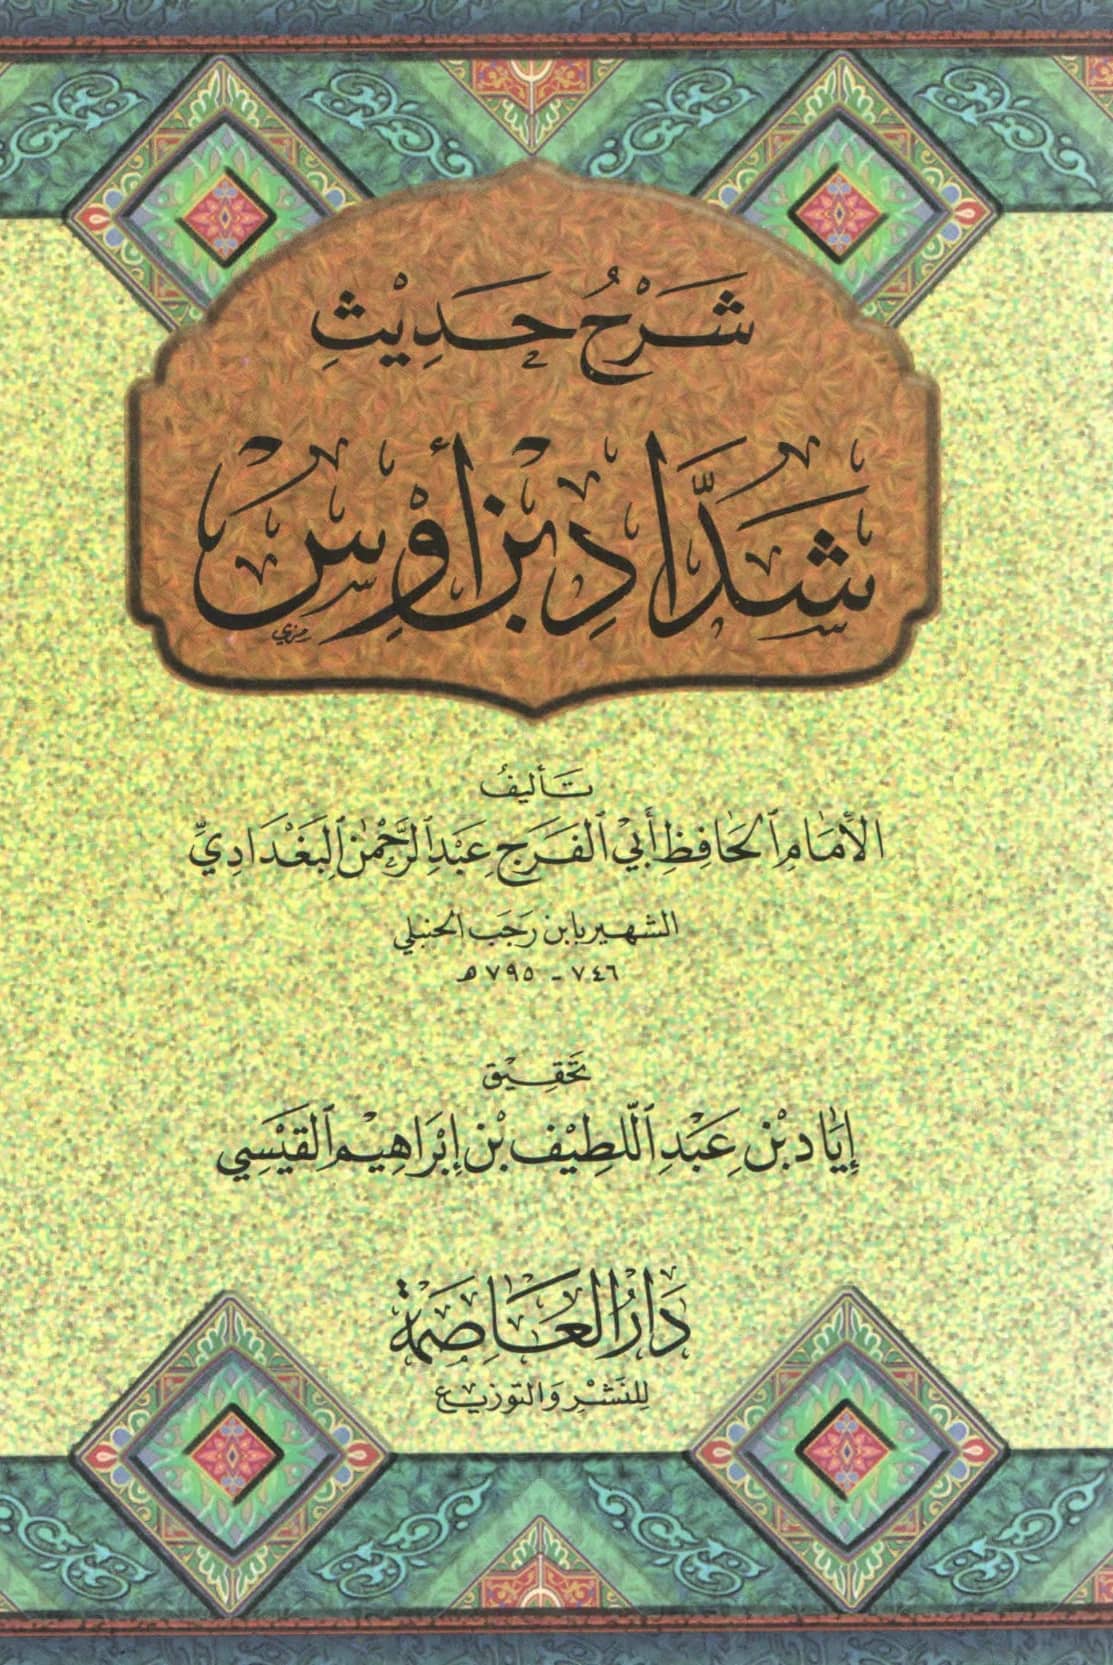 شَرْحُ حَدِيْثِ
شَدَّادِ بْنِ أَوْسٍ
تَأليفُ
الإمَامِ الحَافِظِ أَبِي الفَرَجِ عَبْدِ الرَّحْمٰنِ البَغْدَادِيِّ
الشهير بابن رَجَب الحنبلي
٧٤٦ - ٧٩٥ هـ
تحَقِيْق
إيَاد بْن عَبْدِ اللَّطِيْف بْن إبْرَاهِيْم القَيْسِي
دَارُ العَاصِمَة
لِلنَشْرِ وَالتوزيع